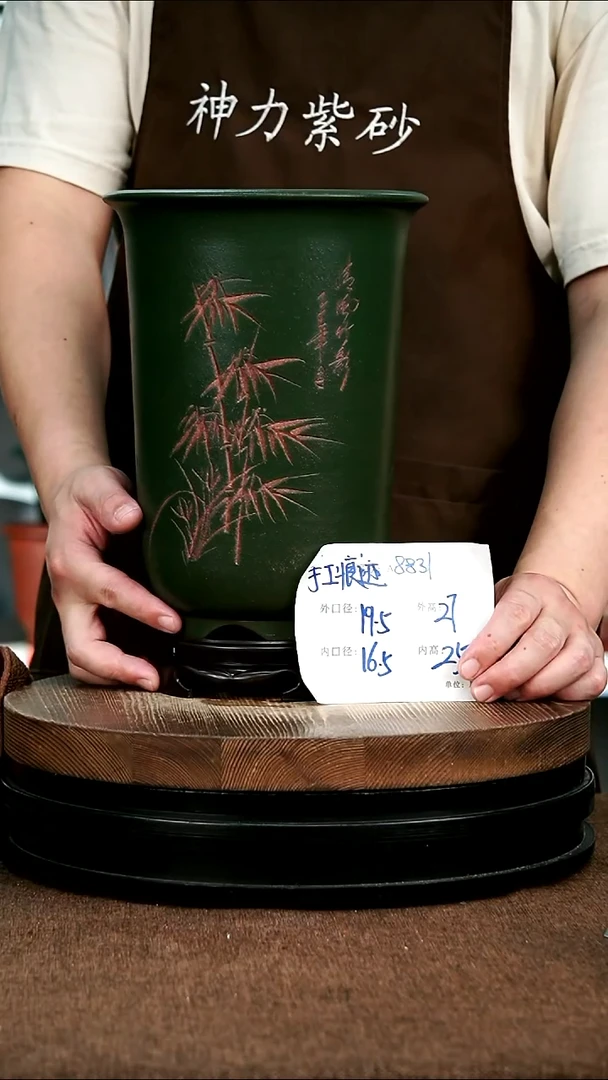 神力紫砂
手工痕迹 8831
外口径: 19.5 外高: 21
内口径: 16.5 内高: 25
单位: